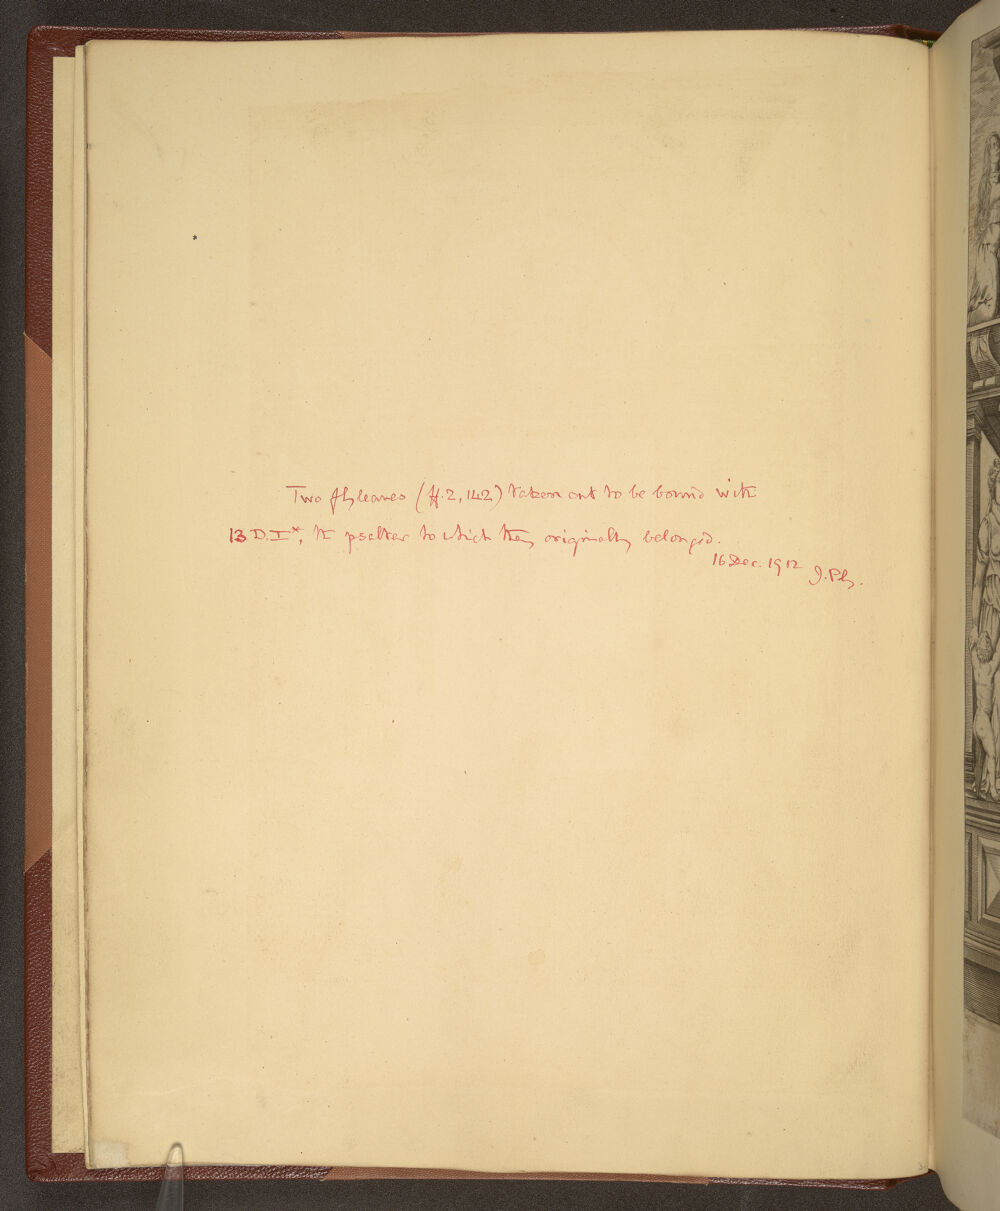 Two flyleaves (ff. 2, 142) taken out to be bound with
13 D. I*, the psalter to which they originally belonged.
16 Dec. 1912 J.P.G.